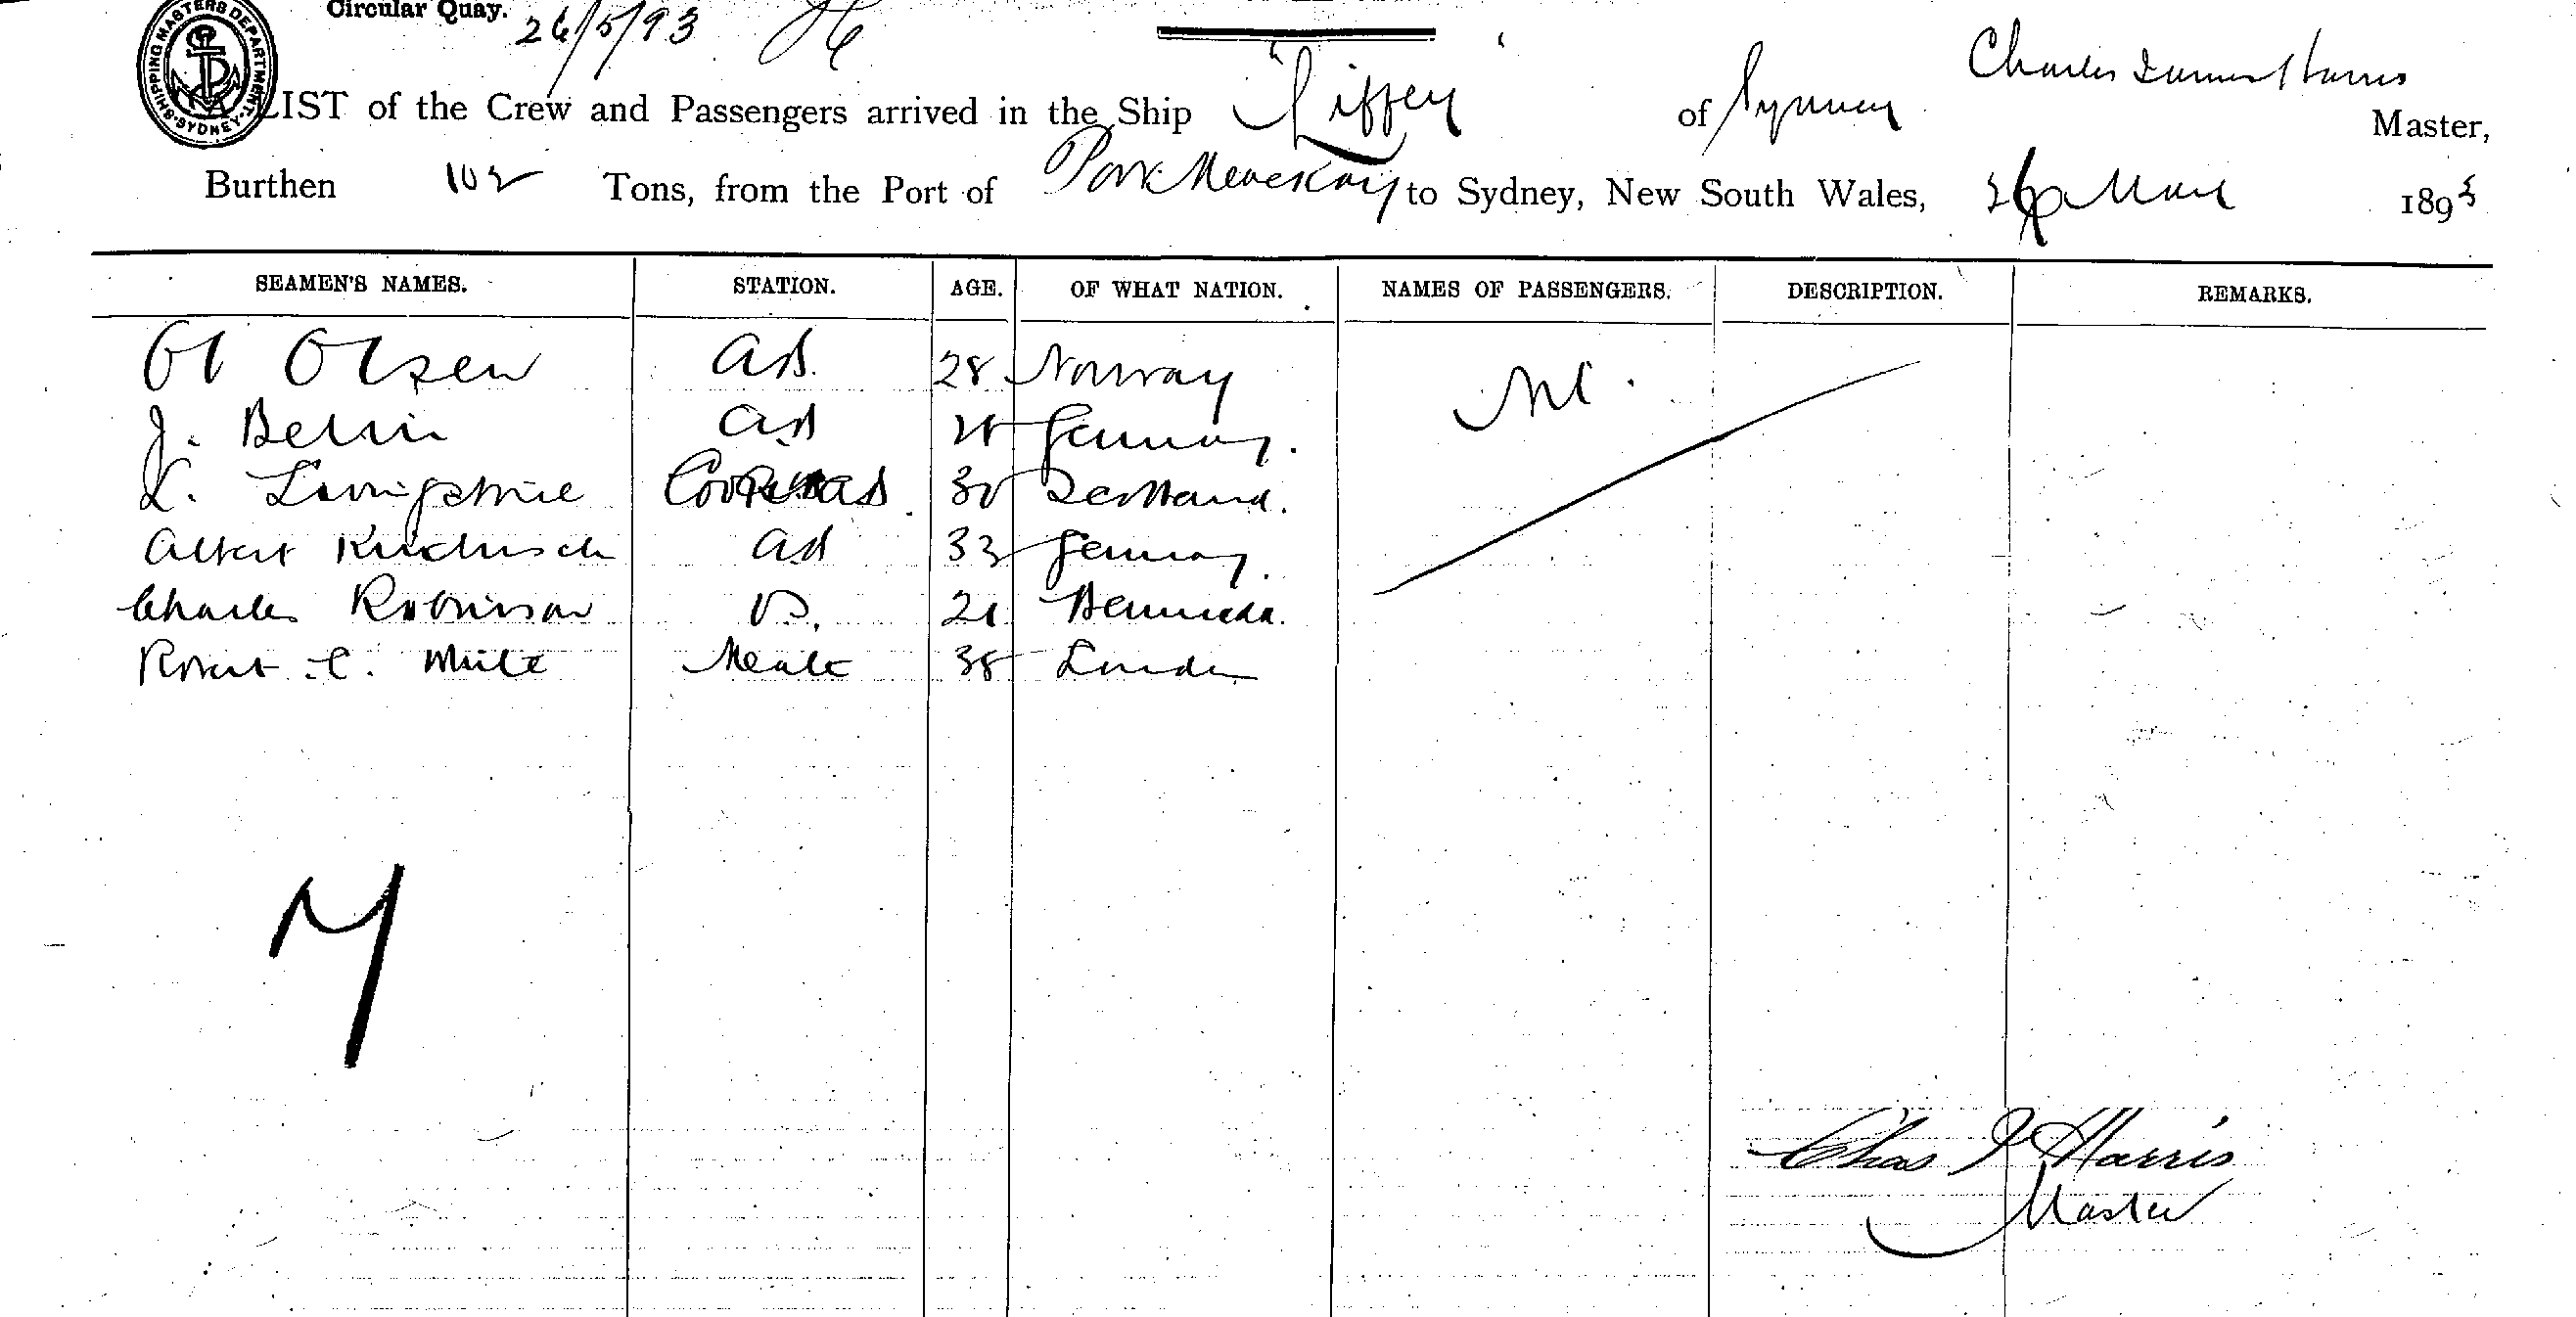 Circular Quay. 26/5/93
SHIPPING MASTERS DEPARTMENT SYDNEY
Charles James Harris
A LIST of the Crew and Passengers arrived in the Ship "Liffey" of Sydney Master,
Burthen 102 Tons, from the Port of Port Mackay to Sydney, New South Wales, 26 May 1893
SEAMEN'S NAMES. STATION. AGE. OF WHAT NATION. NAMES OF PASSENGERS. DESCRIPTION. REMARKS.
Ol Olsen AB. 28 Norway Nil.
J. Behrin AB 28 Germany.
L. Livingstone Cook & AB 30 Scotland.
Albert AB 33 Germany.
Charles Robinson 21 Bermuda.
Robert C. White Mate 38 London
7
Chas J Harris
Master